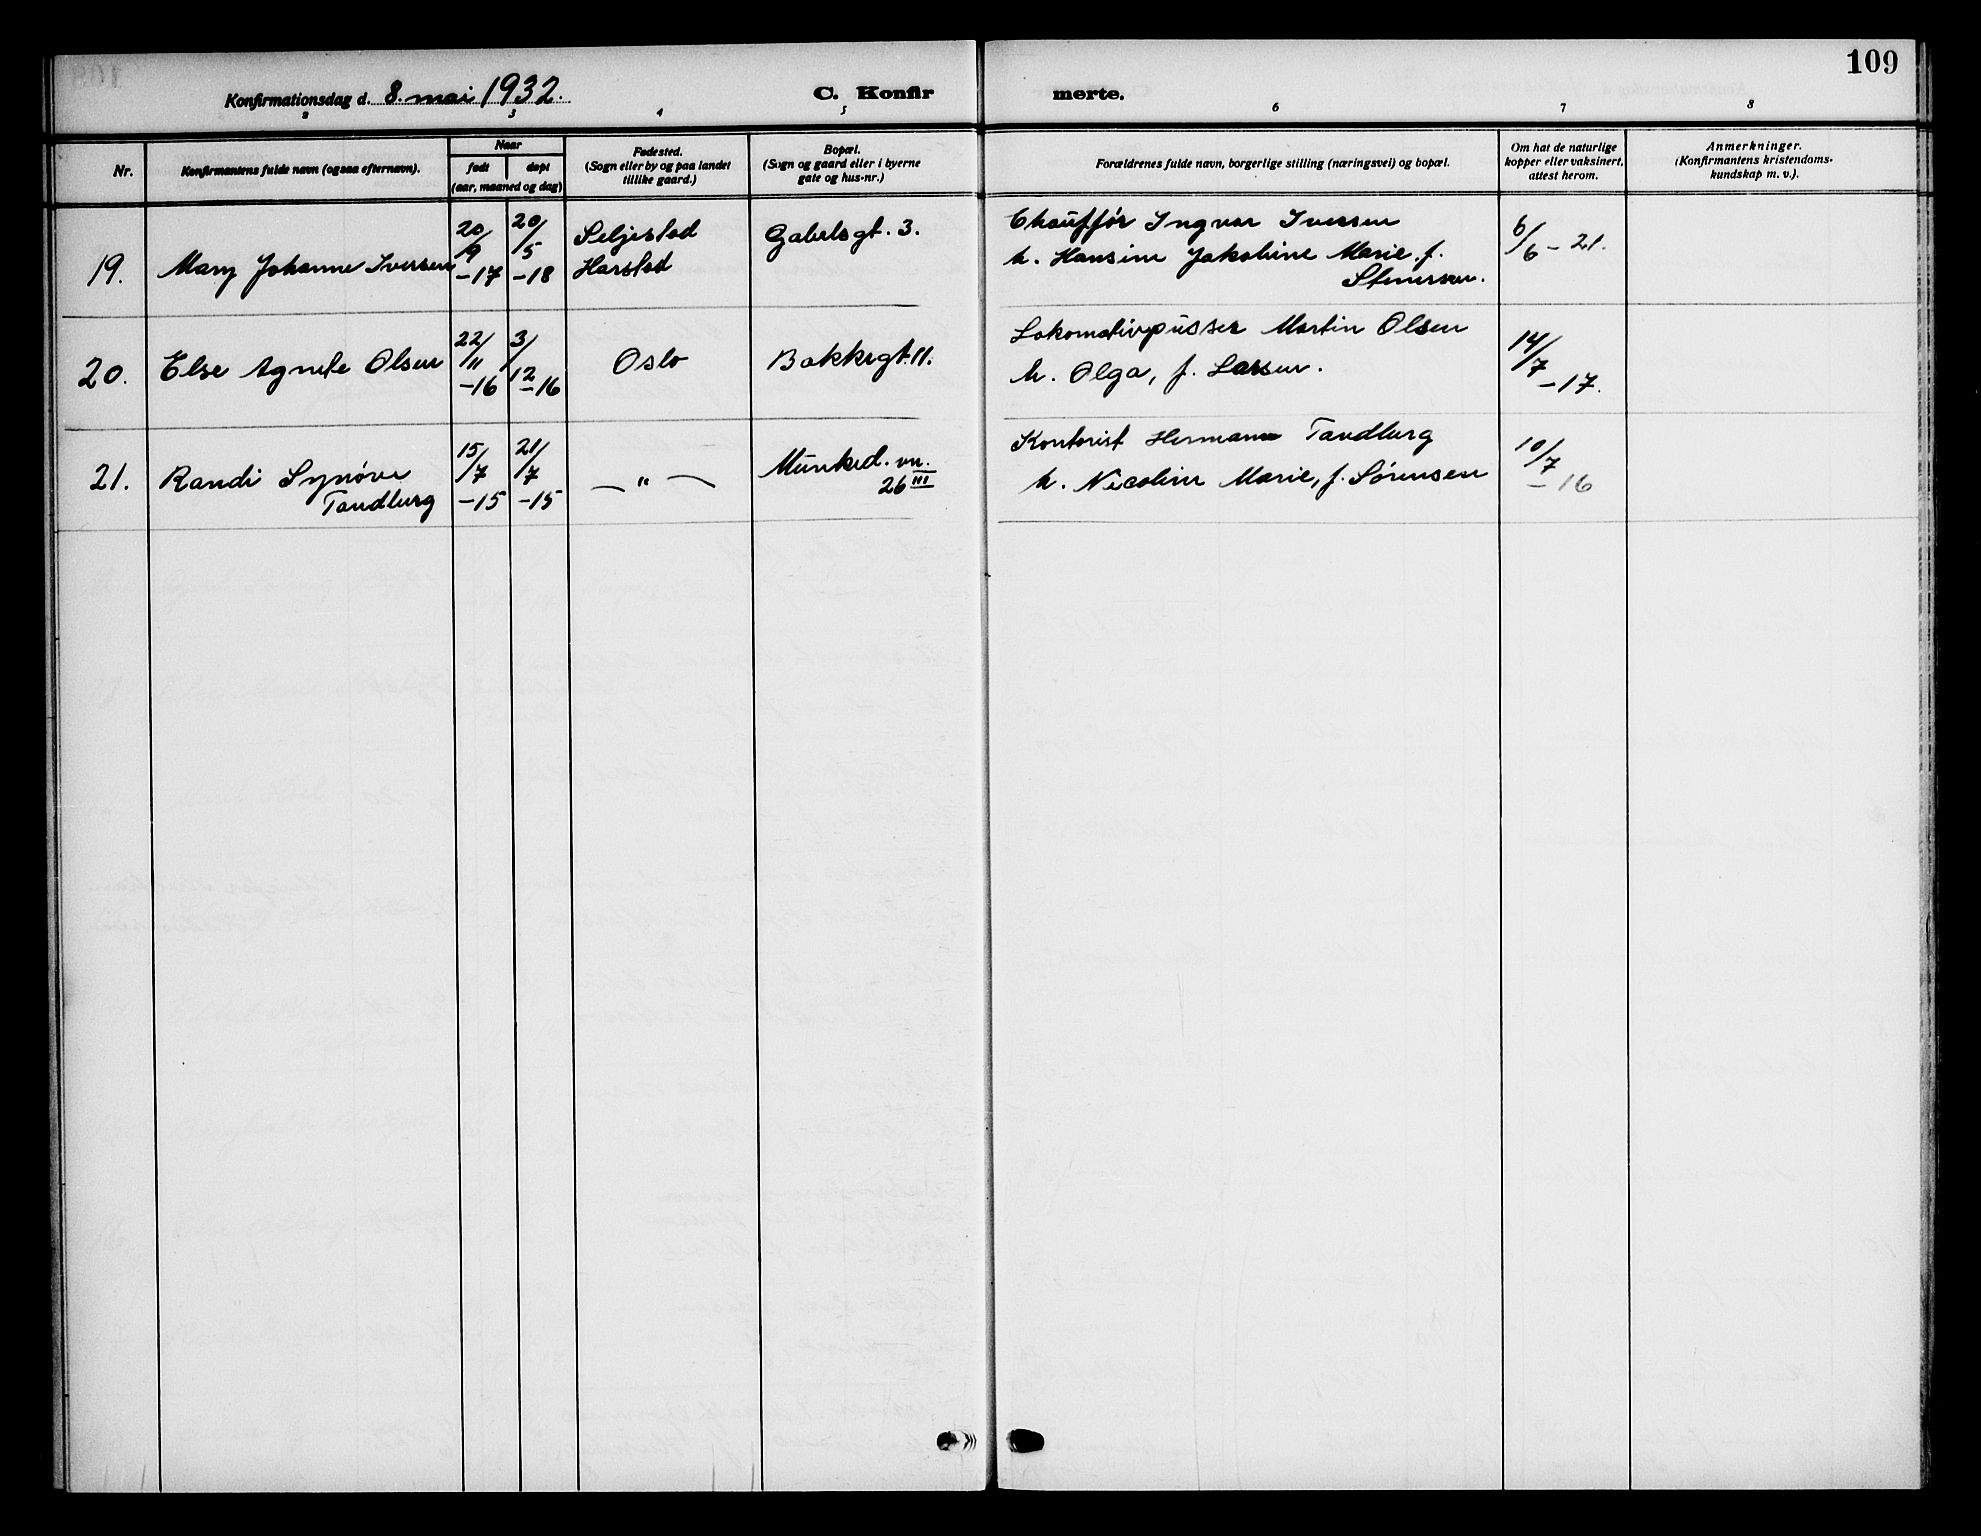 109
Konfirmationsdag d. 8. mai 1932.
C. Konfir merte.
2 3 4 5 6 7 8
Nr.
Konfirmantens fulde navn (ogsaa efternavn).
Naar
født
døpt
(aar, maaned og dag)
Fødested.
(Sogn eller by og paa landet
tillike gaard.)
Bopæl.
(Sogn og gaard eller i byerne
gate og hus-nr.)
Forældrenes fulde navn, borgerlige stilling (næringsvei) og bopæl.
Om hat de naturlige
kopper eller vaksinert,
attest herom.
Anmerkninger.
(Konfirmantens kristendoms-
kundskap m. v.).
19.
Mary Johanne Iversen
20/9 -17
20/5 -18
Seljestad
Harstad
Gabelsgt. 3.
Chauffør Ingvar Iversen
h. Hansine Jakobine Marie. f.
Stenersen.
6/6 - 21.
20.
Else Agnete Olsen
22/11 -16
3/12 -16
Oslo
Bakkegt. 11.
Lokomotivpusser Martin Olsen
h. Olga, f. Larsen.
14/7 -17.
21.
Randi Synøve
Tandberg
15/7 -15
21/7 -15
— " —
Munked. vn.
26 III
Kontorist Hermann Tandberg
h. Nicoline Marie, f. Sørensen
10/7 - 16